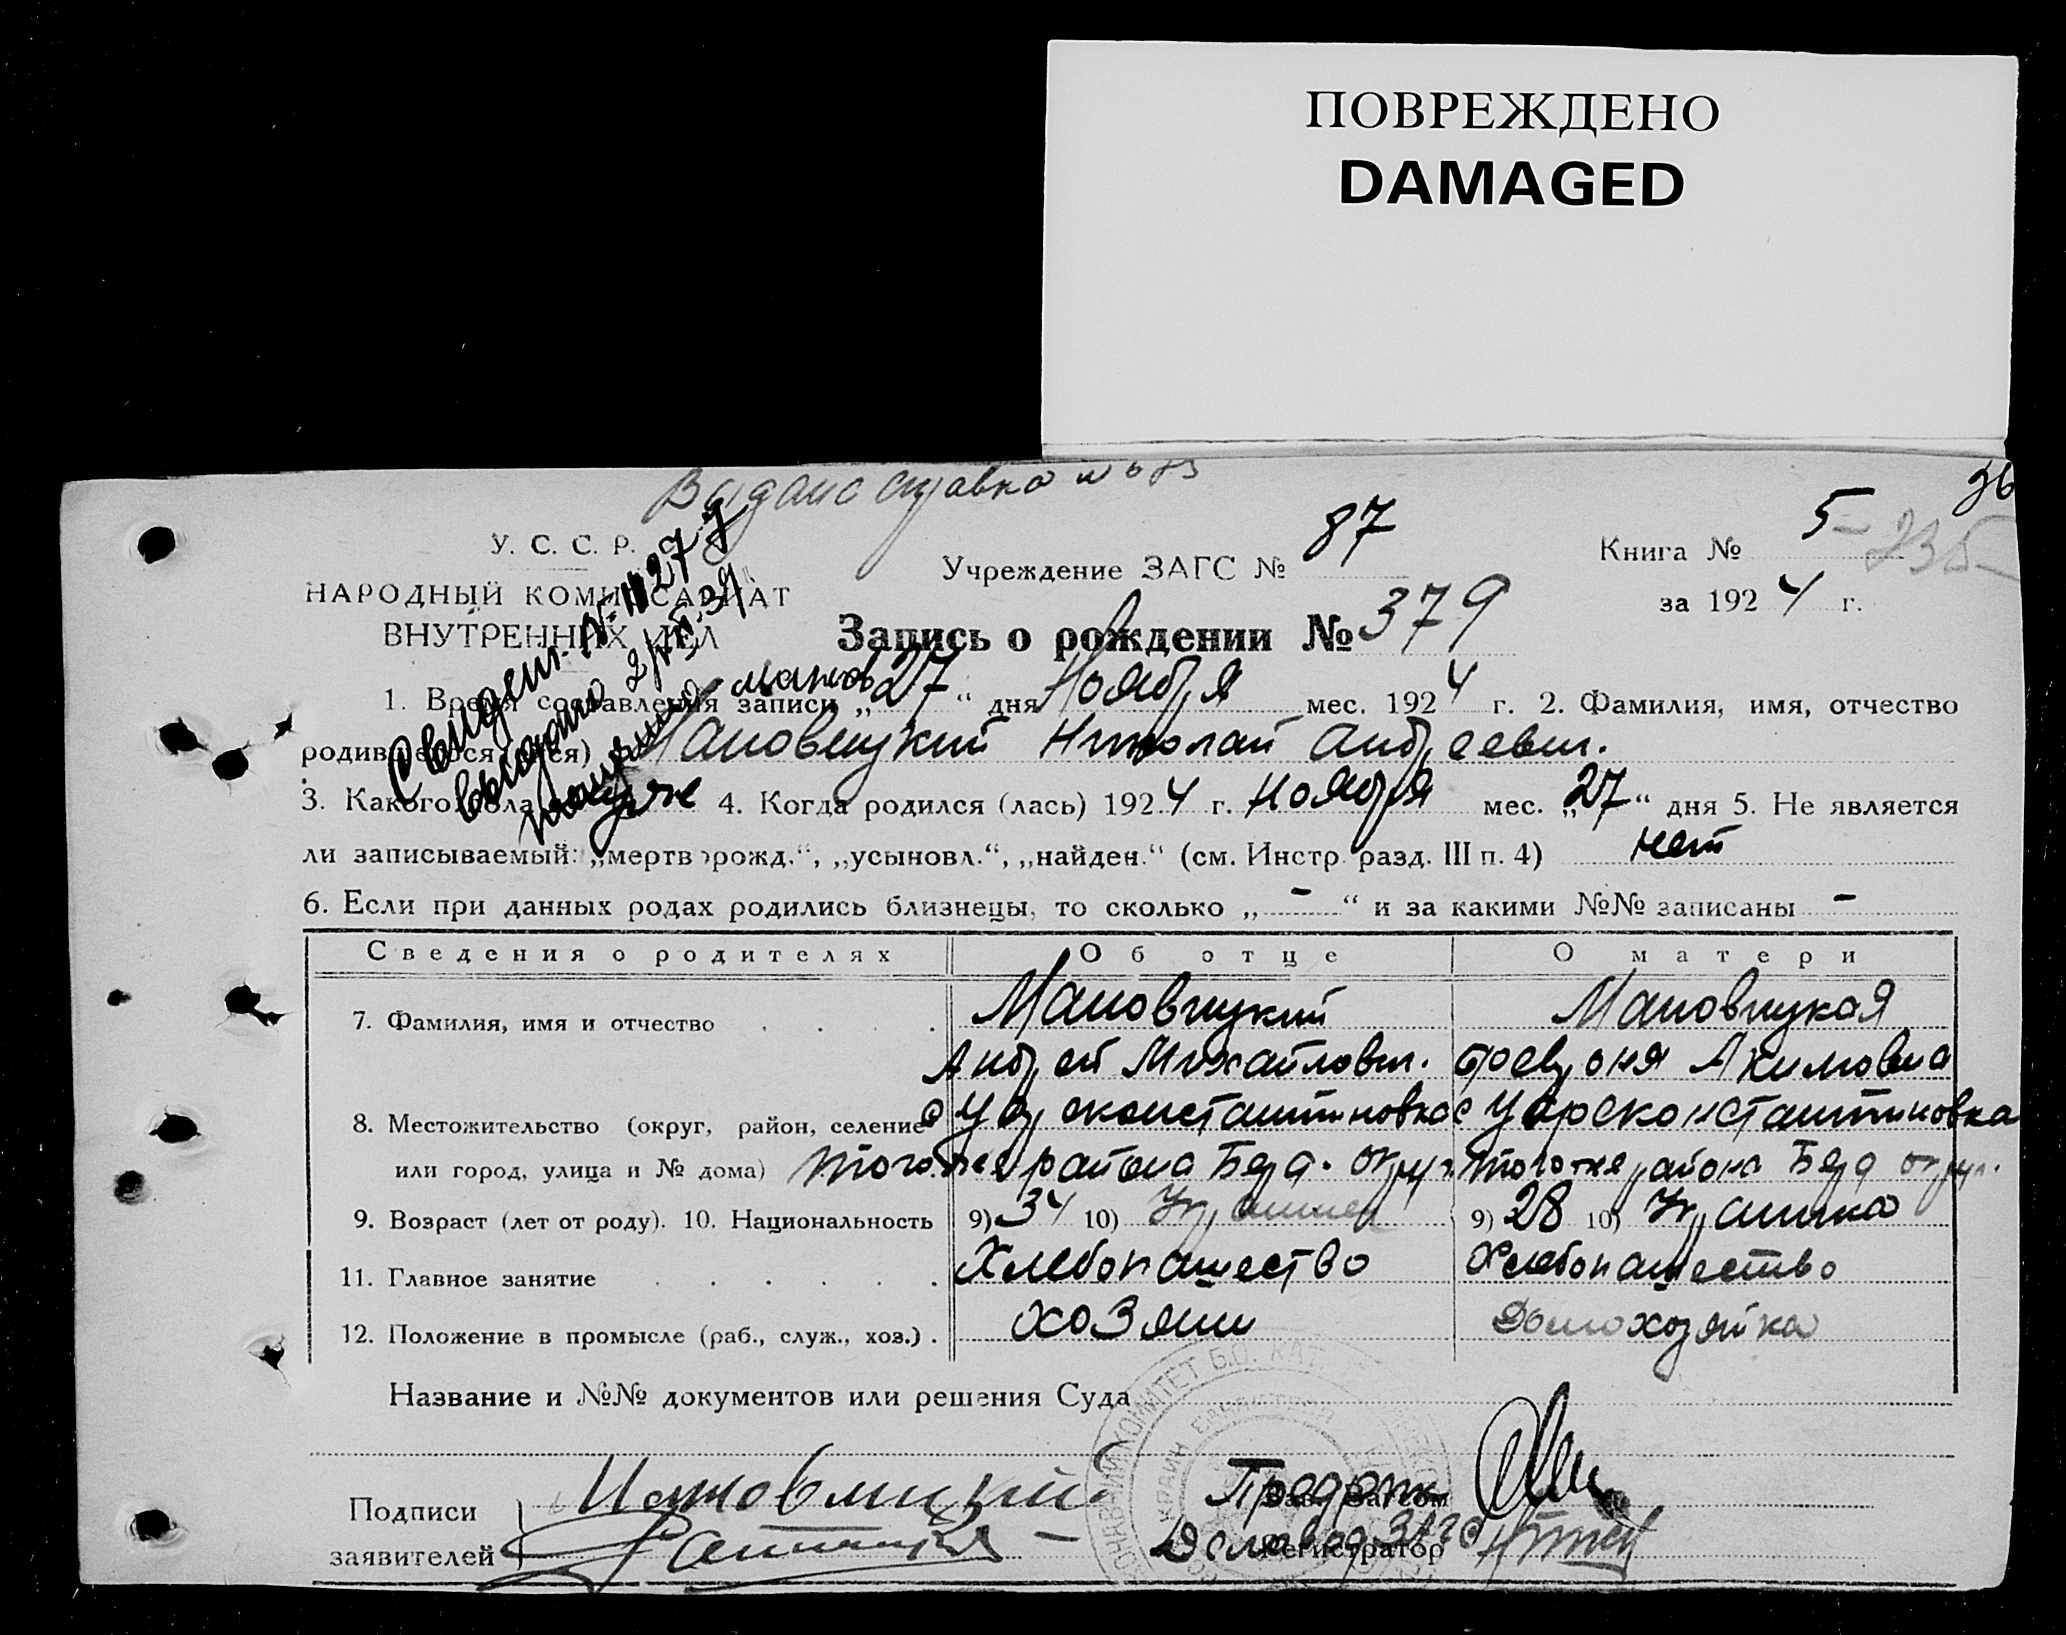 ПОВРЕЖДЕНО
DAMAGED
Выдана справка №
36
У. С. С. Р.
НАРОДНЫЙ КОМИССАРИАТ
ВНУТРЕННИХ ДЕЛ
Учреждение ЗАГС № 87
Книга № 5
235
за 1924 г.
Запись о рождении № 379
Свидет. №
выдано
1. Время составления записи „27“ дня Ноября мес. 1924 г. 2. Фамилия, имя, отчество
родившегося (шейся) Мановицкий Николай Андреевич.
3. Какого пола муж 4. Когда родился (лась) 1924 г. Ноября мес. „27“ дня 5. Не является
ли записываемый: „мертворожд.“, „усыновл.“, „найден.“ (см. Инстр. разд. III п. 4) нет
6. Если при данных родах родились близнецы, то сколько „-“ и за какими №№ записаны -
Сведения о родителях Об отце О матери
7. Фамилия, имя и отчество Мановицкий Мановицкая
Андрей Михайлович. Февроня Акимовна
8. Местожительство (округ, район, селение с Цареконстантиновка с Цареконстантиновка
или город, улица и № дома) того же района Берд. округ того же района Берд округ.
9. Возраст (лет от роду). 10. Национальность 9) 34 10) Украинец 9) 28 10) Украинка
11. Главное занятие Хлебопашество Хлебопашество
12. Положение в промысле (раб., служ., хоз.) хозяин Домохозяйка
Название и №№ документов или решения Суда
Подписи Мановицкий
заявителей
Регистратор